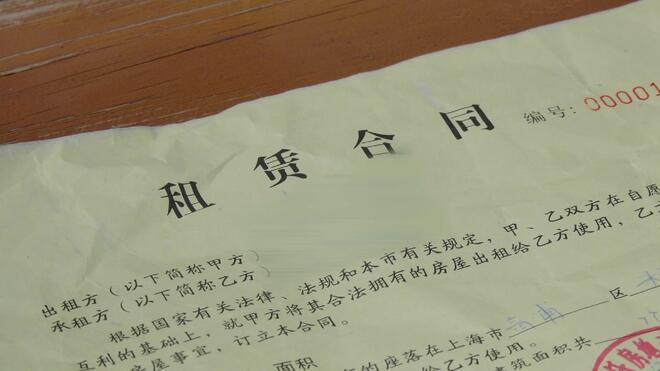 编号:00001
租赁合同
出租方(以下简称甲方)
承租方(以下简称乙方)
根据国家有关法律、法规和本市有关规定,甲、乙双方在自愿
互利的基础上,就甲方将其合法拥有的房屋出租给乙方使用,乙
房屋事宜,订立本合同。
的座落在上海市 区
面积 给乙方使用。
筑面积共